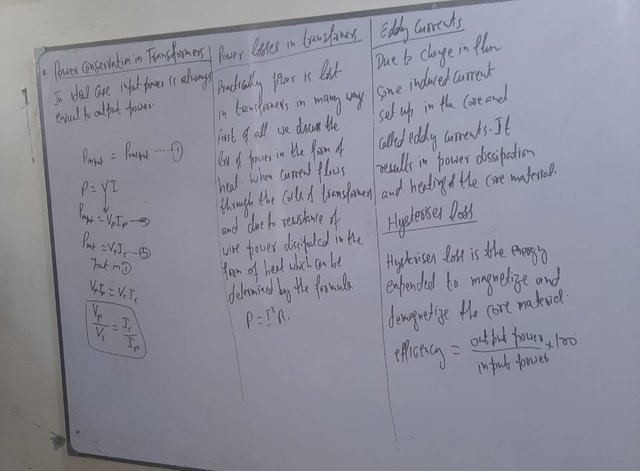 Power Conservation in Transformers
In Ideal Case input power is always
equal to output power.
Pinput = Poutput ---- ①
P = VI
Pinput = VpIp — ②
Pout = VsIs — ③
Put in ①
VpIp = VsIs
Vp/Vs = Is/Ip
Power losses in transformers
Practically power is lost
in transformers in many ways.
First of all we discuss the
loss of power in the form of
heat. When current flows
through the coils of transformers
and due to resistance of
wire power dissipated in the
form of heat which can be
determined by the formula
P = I²R.
Eddy Currents
Due to change in flux
some induced current
set up in the core and
called eddy currents. It
results in power dissipation
and heating of the core material.
Hysterises loss
Hysterises loss is the energy
expended to magnetize and
demagnetize the core material.
efficency = output power/input power × 100